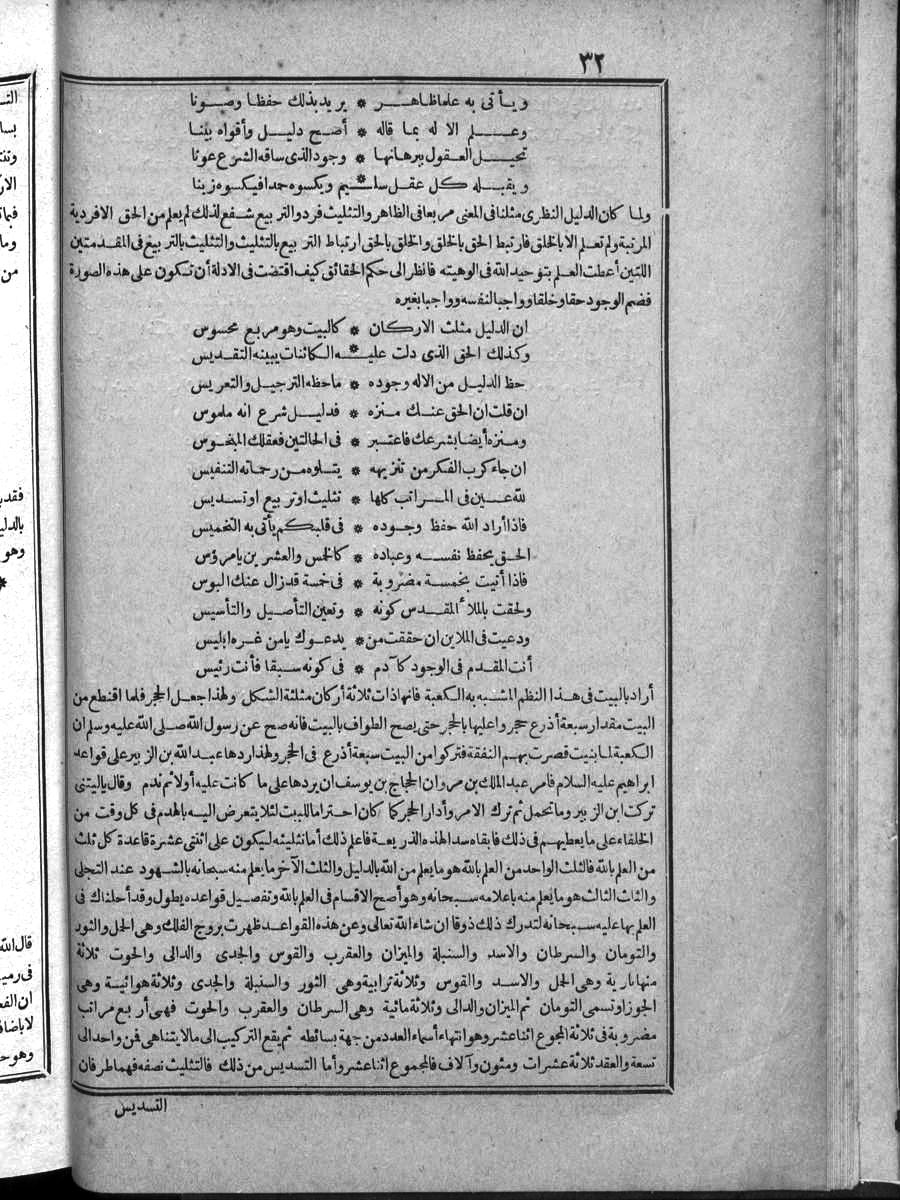 ٣٢
ويأتى به علما ظاهـــر * يريد بذلك حفظا وصونا
وعـــلم الاله بما قاله * أصح دليل وأقواه بينا
تحيل العقول ببرهانها * وجود الذى ساقه الشرع عونا
ويقبله كل عقل سليم * ويكسوه حمدا فيكسوه زينا
ولما كان الدليل النظرى مثلثا فى المعنى مربعا فى الظاهر والتثليث فرد والتربيع شفع لذلك لم يعلم من الحق الا فردية
المرتبة ولم تعلم الا بالخلق فارتبط الحق بالخلق والخلق بالحق ارتباط التربيع بالتثليث والتثليث بالتربيع فى المقدمتين
اللتين أعطت العلم بتوحيد الله فى الوهيته فانظر الى حكم الحقائق كيف اقتضت فى الادلة أن تكون على هذه الصورة
فضم الوجود حقا وخلقا وواجبا لنفسه وواجبا بغيره
ان الدليل مثلث الاركان * كالبيت وهو مربع محسوس
وكذلك الحق الذى دلت عليـ * ـه الكائنات يبينه التقديس
حظ الدليل من الاله وجوده * ما حظه الترجيل والتعريس
ان قلت ان الحق عنك منزه * فدليل شرع انه ملموس
ومنزه أيضا بشرعك فاعتبر * فى الحالتين فعقلك المنحوس
ان جاء كرب الفكر من تنزيهه * يتلوه من رحماته التنفيس
لله عين فى المراتب كلها * تثليث او تربيع او تسديس
فاذا أراد الله حفظ وجوده * فى قلبكم يأتى به التخميس
الحق يحفظ نفسه وعباده * كالخس والعشرين يا مرؤس
فاذا أتيت بخمسة مضروبة * فى خمسة قد زال عنك البوس
ولحقت بالملأ المقدس كونه * وتعين التأصيل والتأسيس
ودعيت فى الملاين ان حققت من * يدعوك يا من غره ابليس
أنت المقدم فى الوجود كآدم * فى كونه سبقا فأنت رئيس
أراد بالبيت فى هذا النظم المشبه به الكعبة فانها ذات ثلاثة أركان مثلثة الشكل ولهذا جعل الحجر فلما اقتطع من
البيت مقدار سبعة أذرع حجروا عليها بالحجر حتى يصح الطواف بالبيت فانه صح عن رسول الله صلى الله عليه وسلم ان
الكعبة لما بنيت قصرت بهم النفقة فتركوا من البيت سبعة أذرع فى الحجر ولهذا ردها عبد الله بن الزبير على قواعد
ابراهيم عليه السلام فامر عبد الملك بن مروان الحجاج بن يوسف ان يردها على ما كانت عليه أولا ثم ندم وقال ياليتنى
تركت ابن الزبير وما تحمل ثم ترك الامر وأدار الحجر كما كان احتراما للبيت لئلا يتعرض اليه بالهدم فى كل وقت من
الخلفاء على ما يعطيهم فى ذلك فابقاه سدا لهذه الذريعة فاعلم ذلك أما تثليثه ليكون على اثنتى عشرة قاعدة كل ثلث
من العلم بالله فالثلث الواحد من العلم بالله هو ما يعلم من الله بالدليل والثلث الآخر ما يعلم منه سبحانه بالشهود عند التجلى
والثلث الثالث هو ما يعلم منه باعلامه سبحانه وهو أصح الاقسام فى العلم بالله وتفصيل قواعده يطول وقد أحلناك فى
العلم بها عليه سبحانه لتدرك ذلك ذوقا ان شاء الله تعالى وعن هذه القواعد ظهرت بروج الفلك وهى الحمل والثور
والتومان والسرطان والاسد والسنبلة والميزان والعقرب والقوس والجدى والدالى والحوت ثلاثة
منها نارية وهى الحمل والاسد والقوس وثلاثة ترابية وهى الثور والسنبلة والجدى وثلاثة هوائية وهى
الجوزا وتسمى التومان ثم الميزان والدالى وثلاثة مائية وهى السرطان والعقرب والحوت فهى أربع مراتب
مضروبة فى ثلاثة المجموع اثنا عشر وهو انتهاء أسماء العدد من جهة بسائطه ثم يقع التركيب الى ما لا يتناهى فمن واحد الى
تسعة والعقد ثلاثة عشرات ومئون وآلاف فالمجموع اثنا عشر وأما التسديس من ذلك فالتثليث نصفه فهما طرفان
التسديس